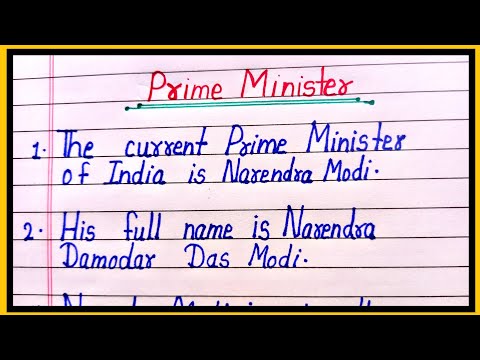 Prime Minister
1. The current Prime Minister
of India is Narendra Modi.
2. His full name is Narendra
Damodar Das Modi.